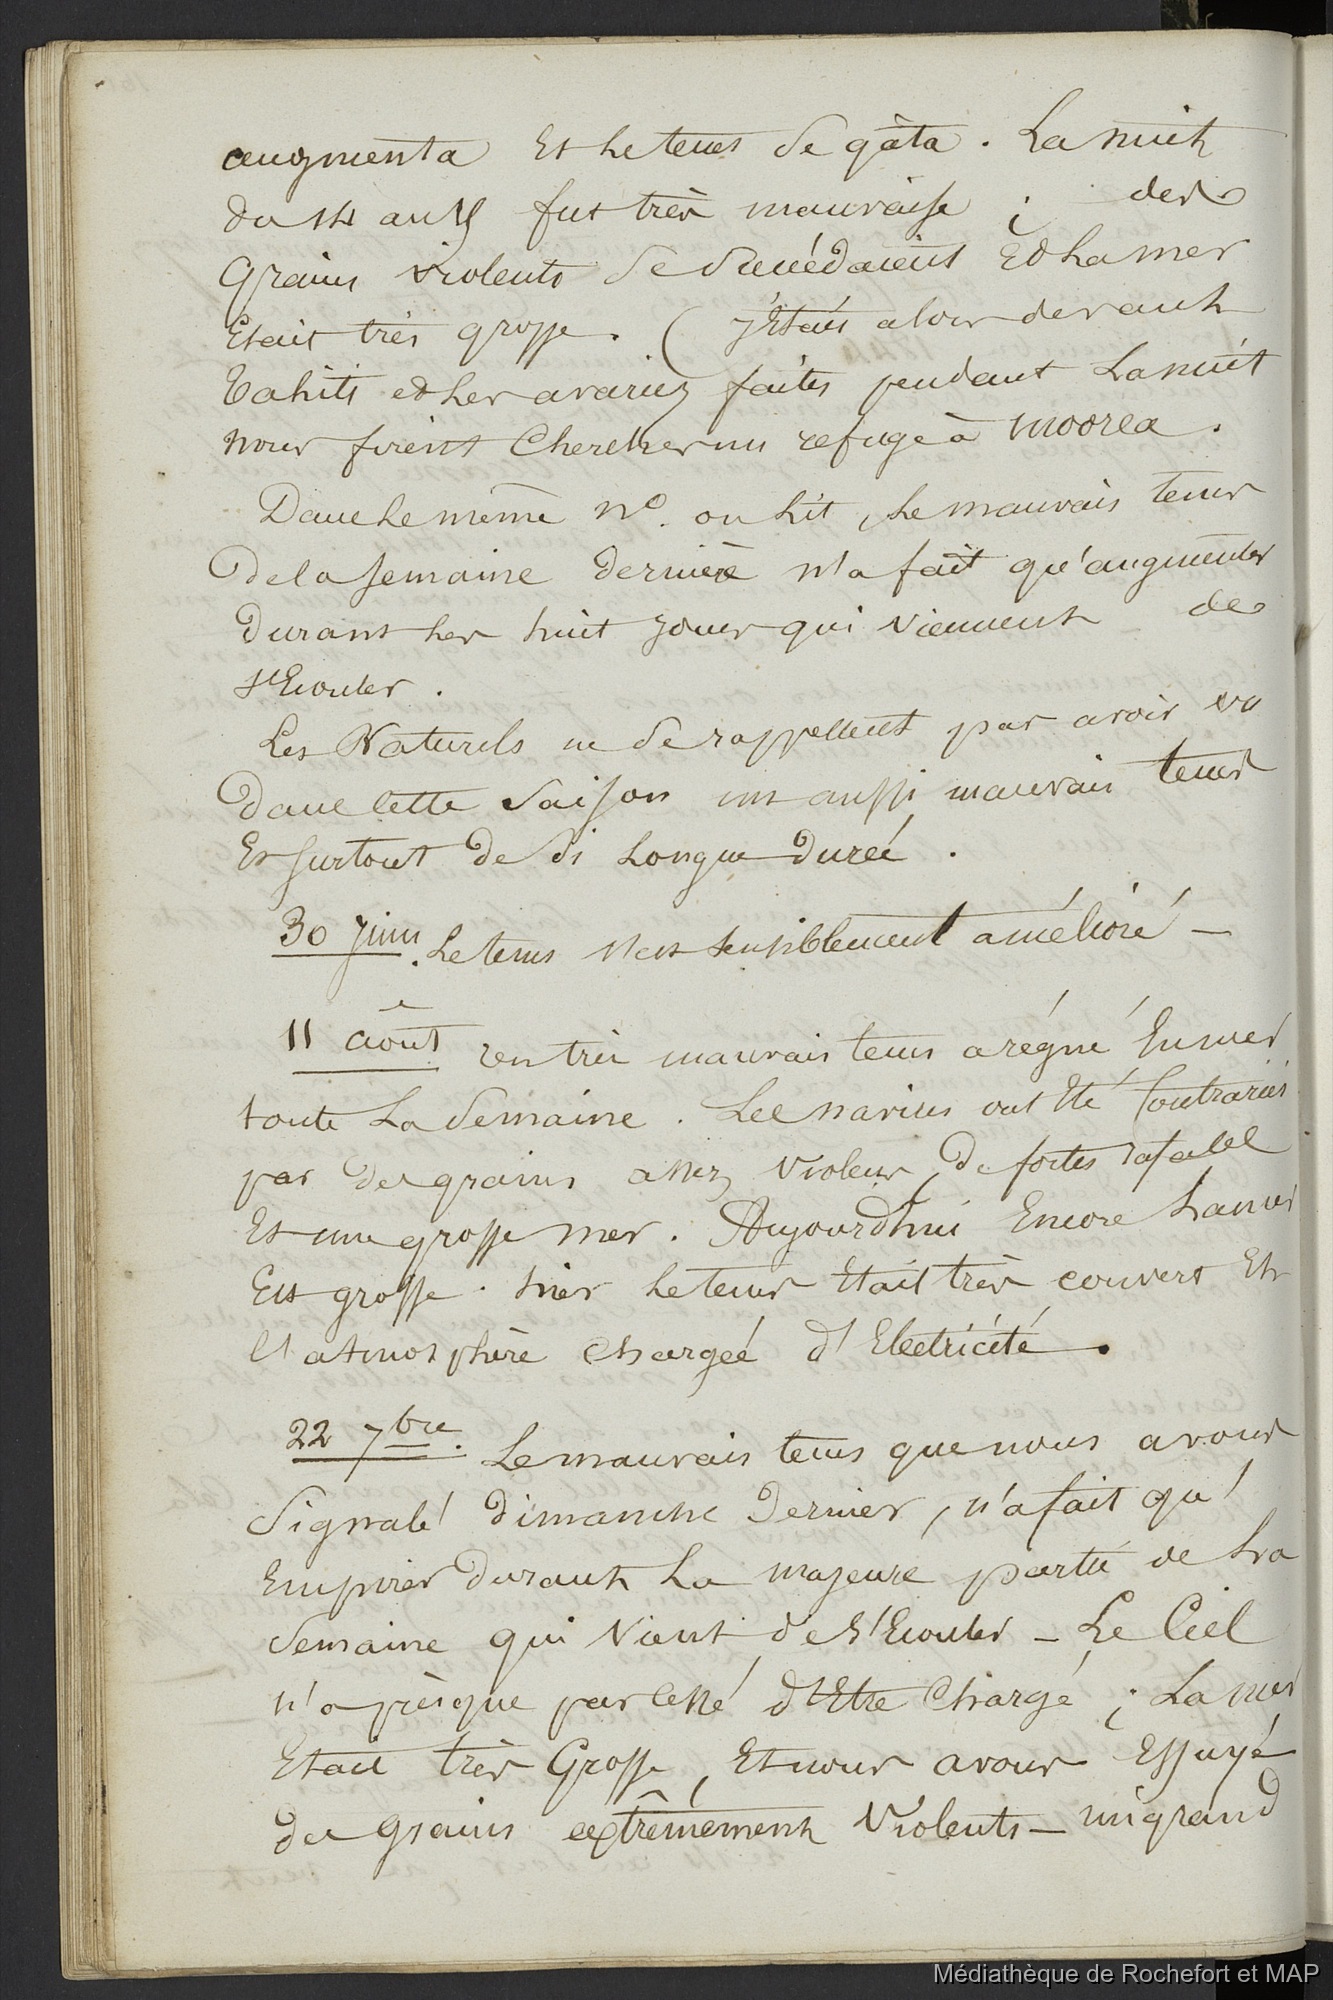 augmenta Et le tems se gâta. La nuit
du 14 au 15 fut très mauvaise ; des
Grains violents se succédaient Et la mer
Etait très grosse. ( J'Etais alors devant
Tahiti et les avaries faites pendant la nuit
nous firent chercher un refuge à Moorea.
Dans le même n°. on lit, le mauvais tems
de la semaine dernière n'a fait qu'augmenter
durant les huit jours qui viennent de
s'Ecouler.
Les Naturels ne se rappellent pas avoir vu
dans cette saison un aussi mauvais tems
Et surtout de si longue durée.
30 Juin. Le tems s'est sensiblement amélioré —
11 août un très mauvais tems a régné En mer
toute la semaine. Les navires ont Eté contrariés
par des grains assez violens, de fortes rafales
Et une grosse mer. Aujourd'hui Encore la mer
Est grosse. hier le tems Etait très couvert Et
l'atmosphère chargée d'Electricité.
22 7bre. Le mauvais tems que nous avons
signalé dimanche dernier, n'a fait qu'
Empirer durant la majeure partie de la
semaine qui vient de s'Ecouler — Le Ciel
n'a presque pas cessé d'Etre chargé ; La mer
Etait très Grosse, Et nous avons Essuyé
des Grains extrêmement violents — un grand
Médiathèque de Rochefort et MAP